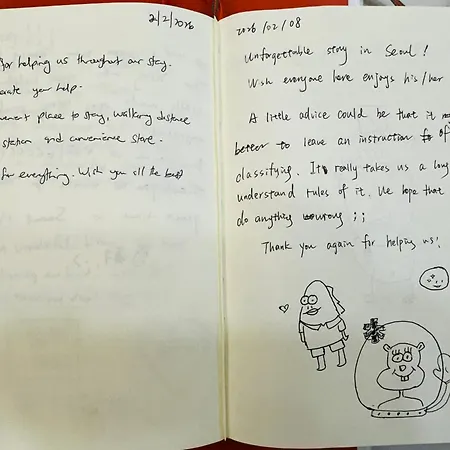 2/2/2026
for helping us throughout our stay.
your help.
place to stay, walking distance
station and convenience store.
for everything. Wish you all the best
2026/02/08
Unforgettable story in Seoul!
Wish everyone here enjoys his/her
A little advice could be that it
better to leave an instruction of
classifying. It really takes us a long
understand rules of it. We hope that
do anything wrong ; ;
Thank you again for helping us!